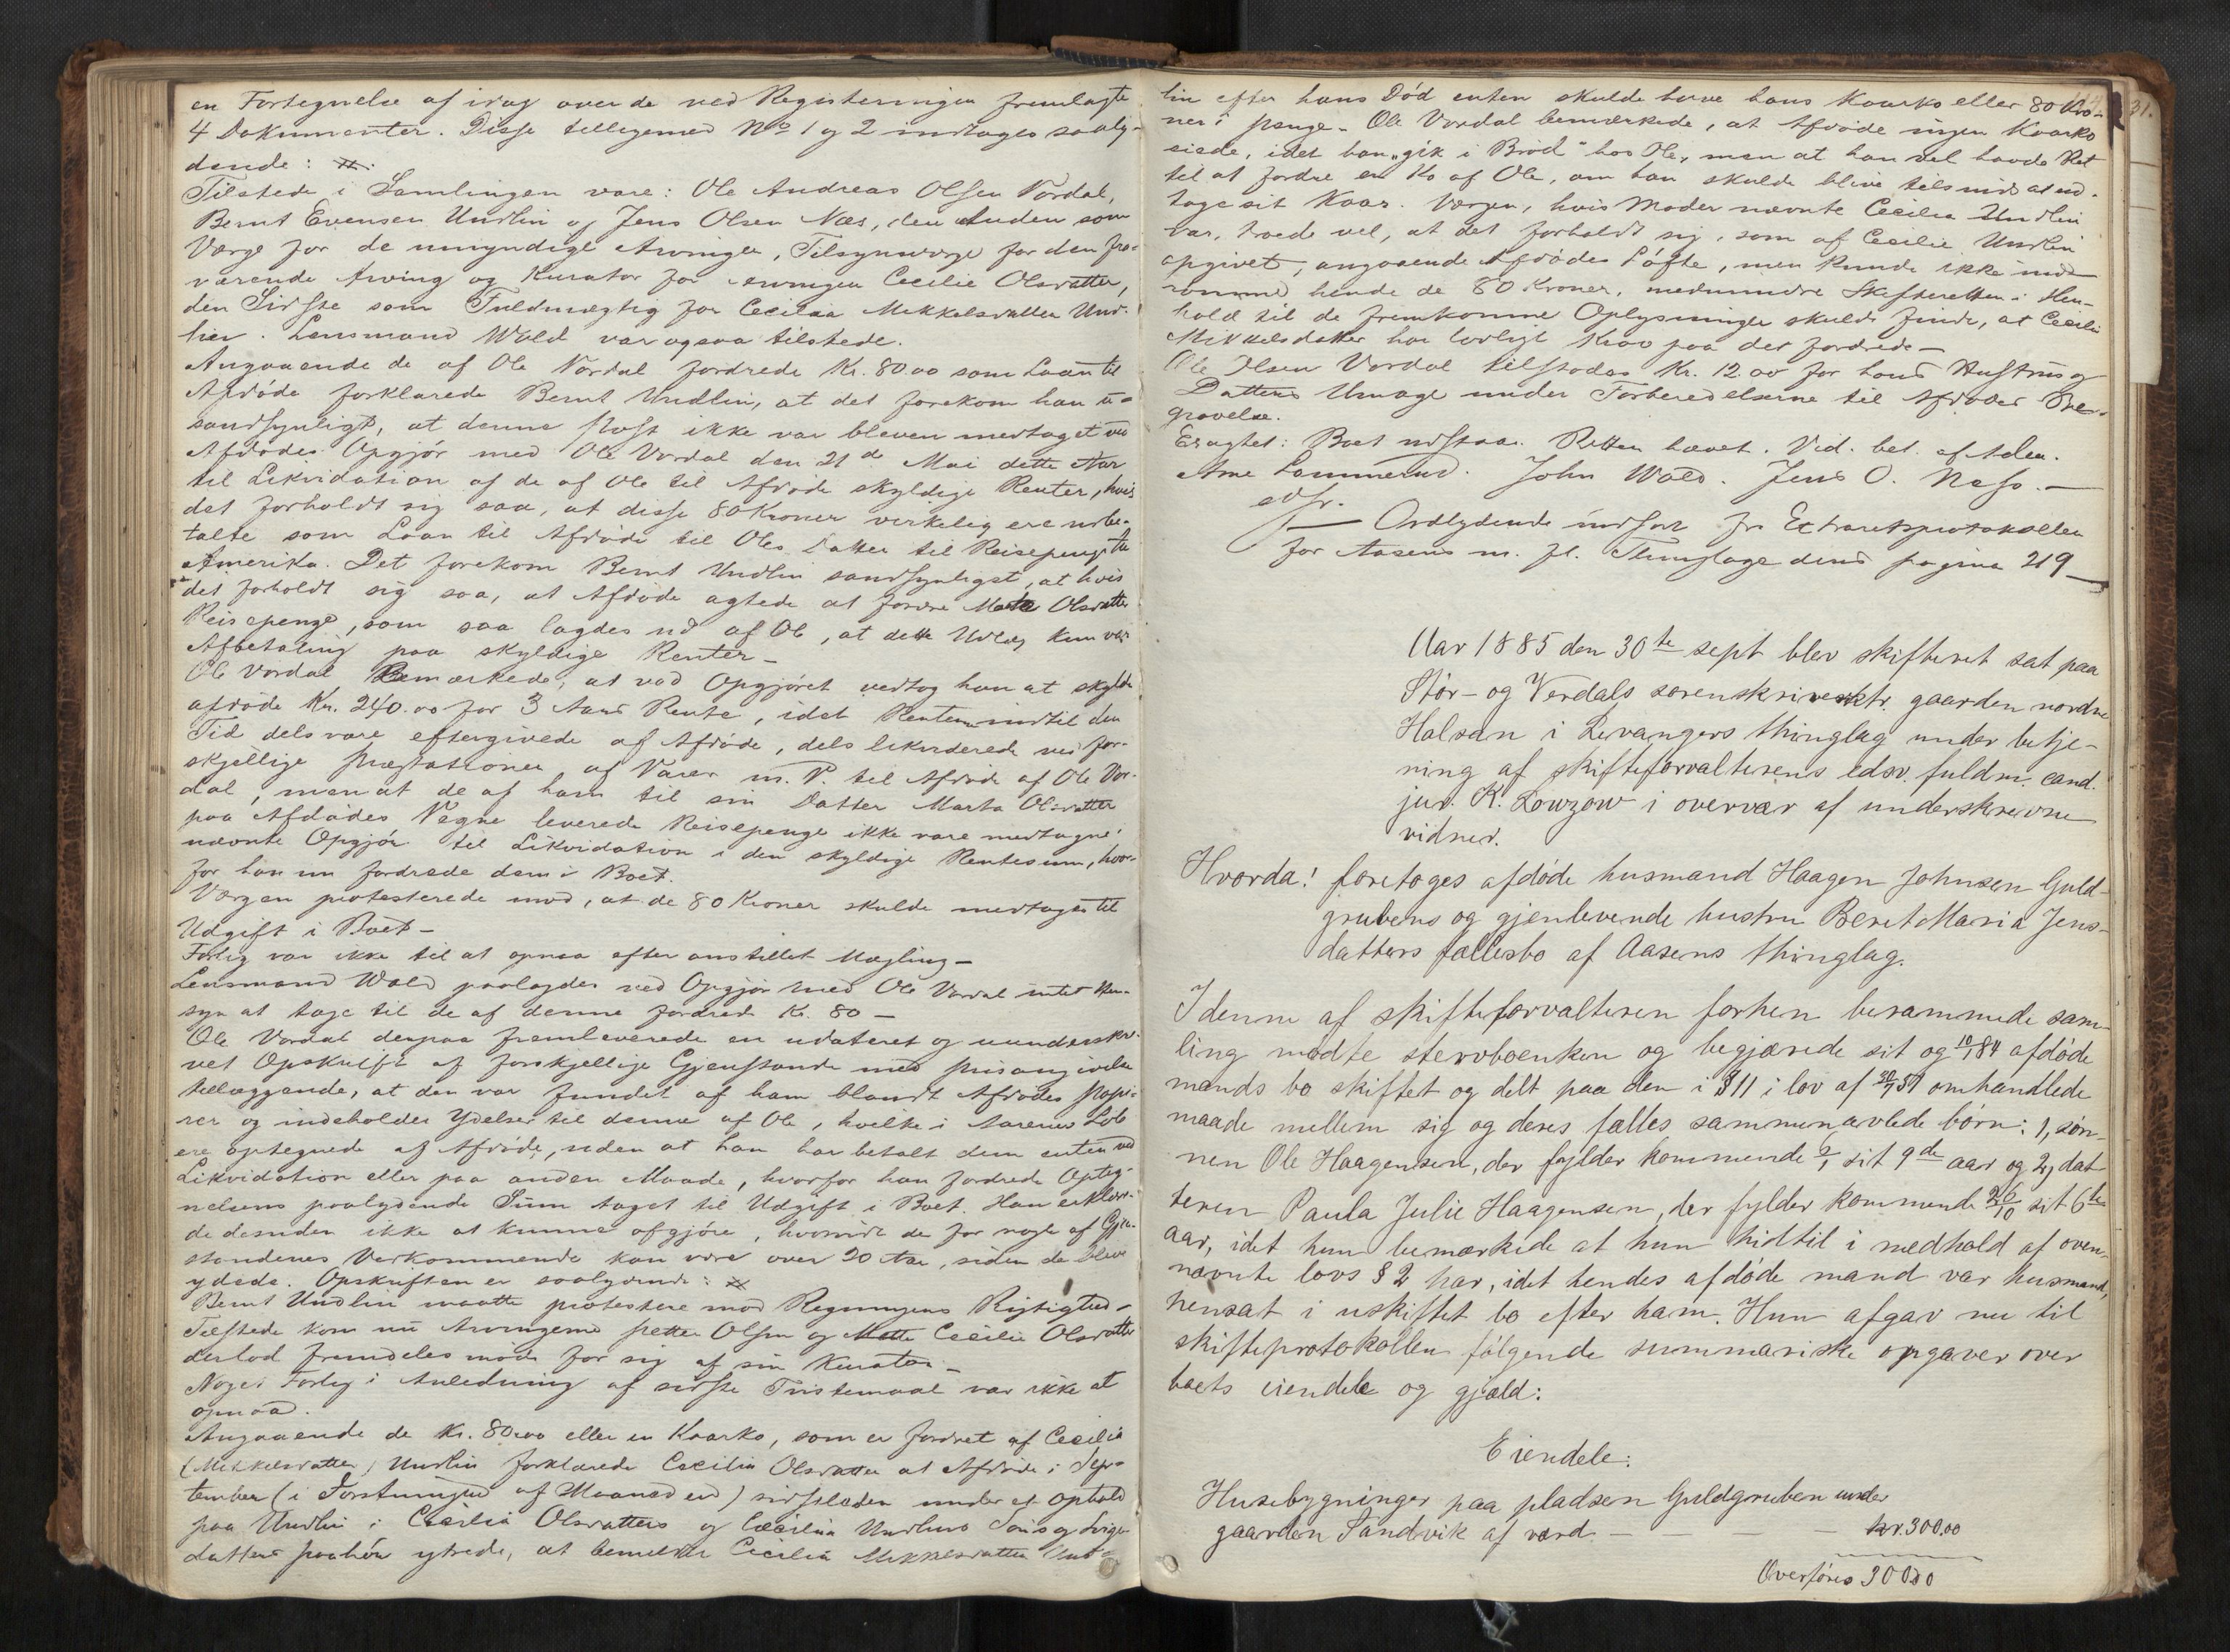 en Fortegnelse af idag over de ved Registeringen fremlagte
4 Dokumenter. Disse tilligemed No 1 og 2 indtages saaly-
dende: #.
Tilstede i Samlingen vare: Ole Andreas Olsen Vordal,
Bernt Evensen Undlin og Jens Olsen Næs, den Anden som
Værge for de umyndige Arvinger, Tilsynsværge for den fra-
værende Arving og Kurator for Arvingen Cecilie Olsdatter,
den Sidste som Fuldmægtig for Cecilia Mikkelsdatter Und-
lien. Lensmand Wold var ogsaa tilstede.
Angaaende de af Ole Vordal fordrede Kr. 80.00 som Laan til
Afdøde forklarede Bernt Undlin, at det forekom ham u-
sandsynligt, at denne Post ikke var bleven medtaget ved
Afdødes Opgjør med Ole Vordal den 21de Mai dette Aar
til Likvidation af de af Ole til Afdøde skyldige Renter, hvis
det forholdt sig saa, at disse 80 Kroner virkelig ere udbe-
talte som Laan til Afdøde til Oles Datter til Reisepenge til
Amerika. Det forekom Bernt Undlin sandsynligst, at hvis
det forholdt sig saa, at Afdøde agtede at forære Marta Olsdatter
Reisepenge, som saa lagdes ud af Ole, at dette Udlæg kun var
Afbetaling paa skyldige Renter –
Ole Vordal Bemærkede, at ved Opgjøret vedtog han at skylde
afdøde Kr. 240.00 for 3 Aars Rente, idet Renten indtil den
Tid dels vare eftergivede af Afdøde, dels likviderede ved for-
skjellige Præstationer af Varer m. V. til Afdøde af Ole Vor-
dal, men at de af ham til sin Datter Marta Olsdatter
paa Afdødes Vegne leverede Reisepenge ikke vare medtagne i
nævnte Opgjør til Likvidation i den skyldige Rentesum, hvor-
for han nu fordrede dem i Boet.
Værgen protesterede mod, at de 80 Kroner skulde medtages til
Udgift i Boet –
Forlig var ikke til at opnaa efter anstillet Mægling –
Lensmand Wold paalagdes ved Opgjør med Ole Vordal intet Hen-
syn at tage til de af denne fordrede Kr. 80 –
Ole Vordal derpaa fremleverede en udateret og uunderskre-
vet Opskrift af forskjellige Gjenstande med Prisangivelse
tillæggende, at den var fundet af ham blandt Afdødes Papi-
rer og indeholder Ydelser til denne af Ole, hvilke i Aarenes Løb
ere optegnede af Afdøde, uden at han har betalt dem enten ved
Likvidation eller paa anden Maade, hvorfor han fordrede Opteg-
nelsens paalydende Sum taget til Udgift i Boet. Han erklære-
de desuden ikke at kunne afgjøre, hvorvidt de for nogle af Gjen-
standenes Vedkommende kan være over 20 Aar, siden de bleve
ydede. Opskriften er saalydende: #
Bernt Undlin maatte protestere mod Regningens Rigtighed –
Tilstede kom nu Arvingerne Petter Olsen og Mette Cecilie Olsdatter
derlod fremdeles møde for sig af sin Kurator. –
Noget Forlig i Anledning af sidste Tvistemaal var ikke at
opnaa.
Angaaende de Kr. 80.00 eller en Kaarko, som er fordret af Cecilia
(Mikkelsdatter) Undlin forklarede Cecilia Olsdatter at Afdøde i Sep-
tember (i Forstningen af Maaneden) sidstleden under et Ophold
paa Undlin i Cecilia Olsdatters og Cecilia Undlins Søns og Sviger-
datters Paahør ytrede, at bemeldte Cecilia Mikkelsdatter Und-
31.
lin efter hans Død enten skulde have hans Kaarko eller 80 Kro-
ner i penge. Ole Vordal bemærkede, at Afdøde ingen Kaarko
eiede, idet han „gik i Brød" hos Ole, men at han vel havde Ret
til at fordre en Ko af Ole, om han skulde blive tilsinds at ud-
tage sit Kaar. Værgen, hvis Moder nævnte Cecilia Undlin
var, troede vel, at det forholdt sig, som af Cecilie Undlin
opgivet, angaaende Afdødes Løfte, men kunde ikke ind-
rømme hende de 80 Kroner, medmindre Skifteretten i Hen-
hold til de fremkomne Oplysninger skulde finde, at Cecilie
Mikkelsdatter har lovligt Krav paa det fordrede –
Ole Olsen Vordal tilstodes Kr. 12.00 for hans Hustrus og
Datters Umage under Forberedelserne til Afdødes Be-
gravelse.
Eragtet: Boet udstaar. Retten hævet. Vid. bet. af Aden.
Arne Lommerud. John Wold. Jens O. Næss. –
edsv.
Ordlydende indført fra Extraretsprotokollen
for Aasens m. fl. Thinglage dens pagina 219 –
Aar 1885 den 30te sept blev skifteret sat paa
Stør- og Verdals sorenskriverktr. gaarden nordre
Halsan i Levangers thinglag under betje-
ning af skifteforvalterens edsv. fuldm. cand.
jur. K. Lowzow i overvær af underskrevne
vidner.
Hvorda! foretoges afdøde husmand Haagen Johnsen Guld-
grubens og gjenlevende hustru Beret Maria Jens-
datters fællesbo af Aasens thinglag.
I denne af skifteforvalteren forhen berammede sam-
ling mødte stervboenken og begjærede sit og 10/1 84 afdøde
mands bo skiftet og delt paa den i § 11 i lov af 30/7 51 omhandlede
maade mellem sig og deres fælles sammenavlede børn: 1, søn-
nen Ole Haagensen, der fylder kommende 2/1 sit 9de aar og 2, dat-
teren Paula Julie Haagensen, der fylder kommende 26/10 sit 6te
aar, idet hun bemærkede at hun hidtil i medhold af oven-
nævnte lovs § 2 har, idet hendes afdøde mand var husmand,
hensat i uskiftet bo efter ham. Hun afgav nu til
skifteprotokollen følgende summariske opgaver over
boets eiendele og gjæld:
Eiendele:
Husebygninger paa pladsen Guldgruben under
gaarden Sandvik af værd – – – – kr. 300.00
Overføres 300.00